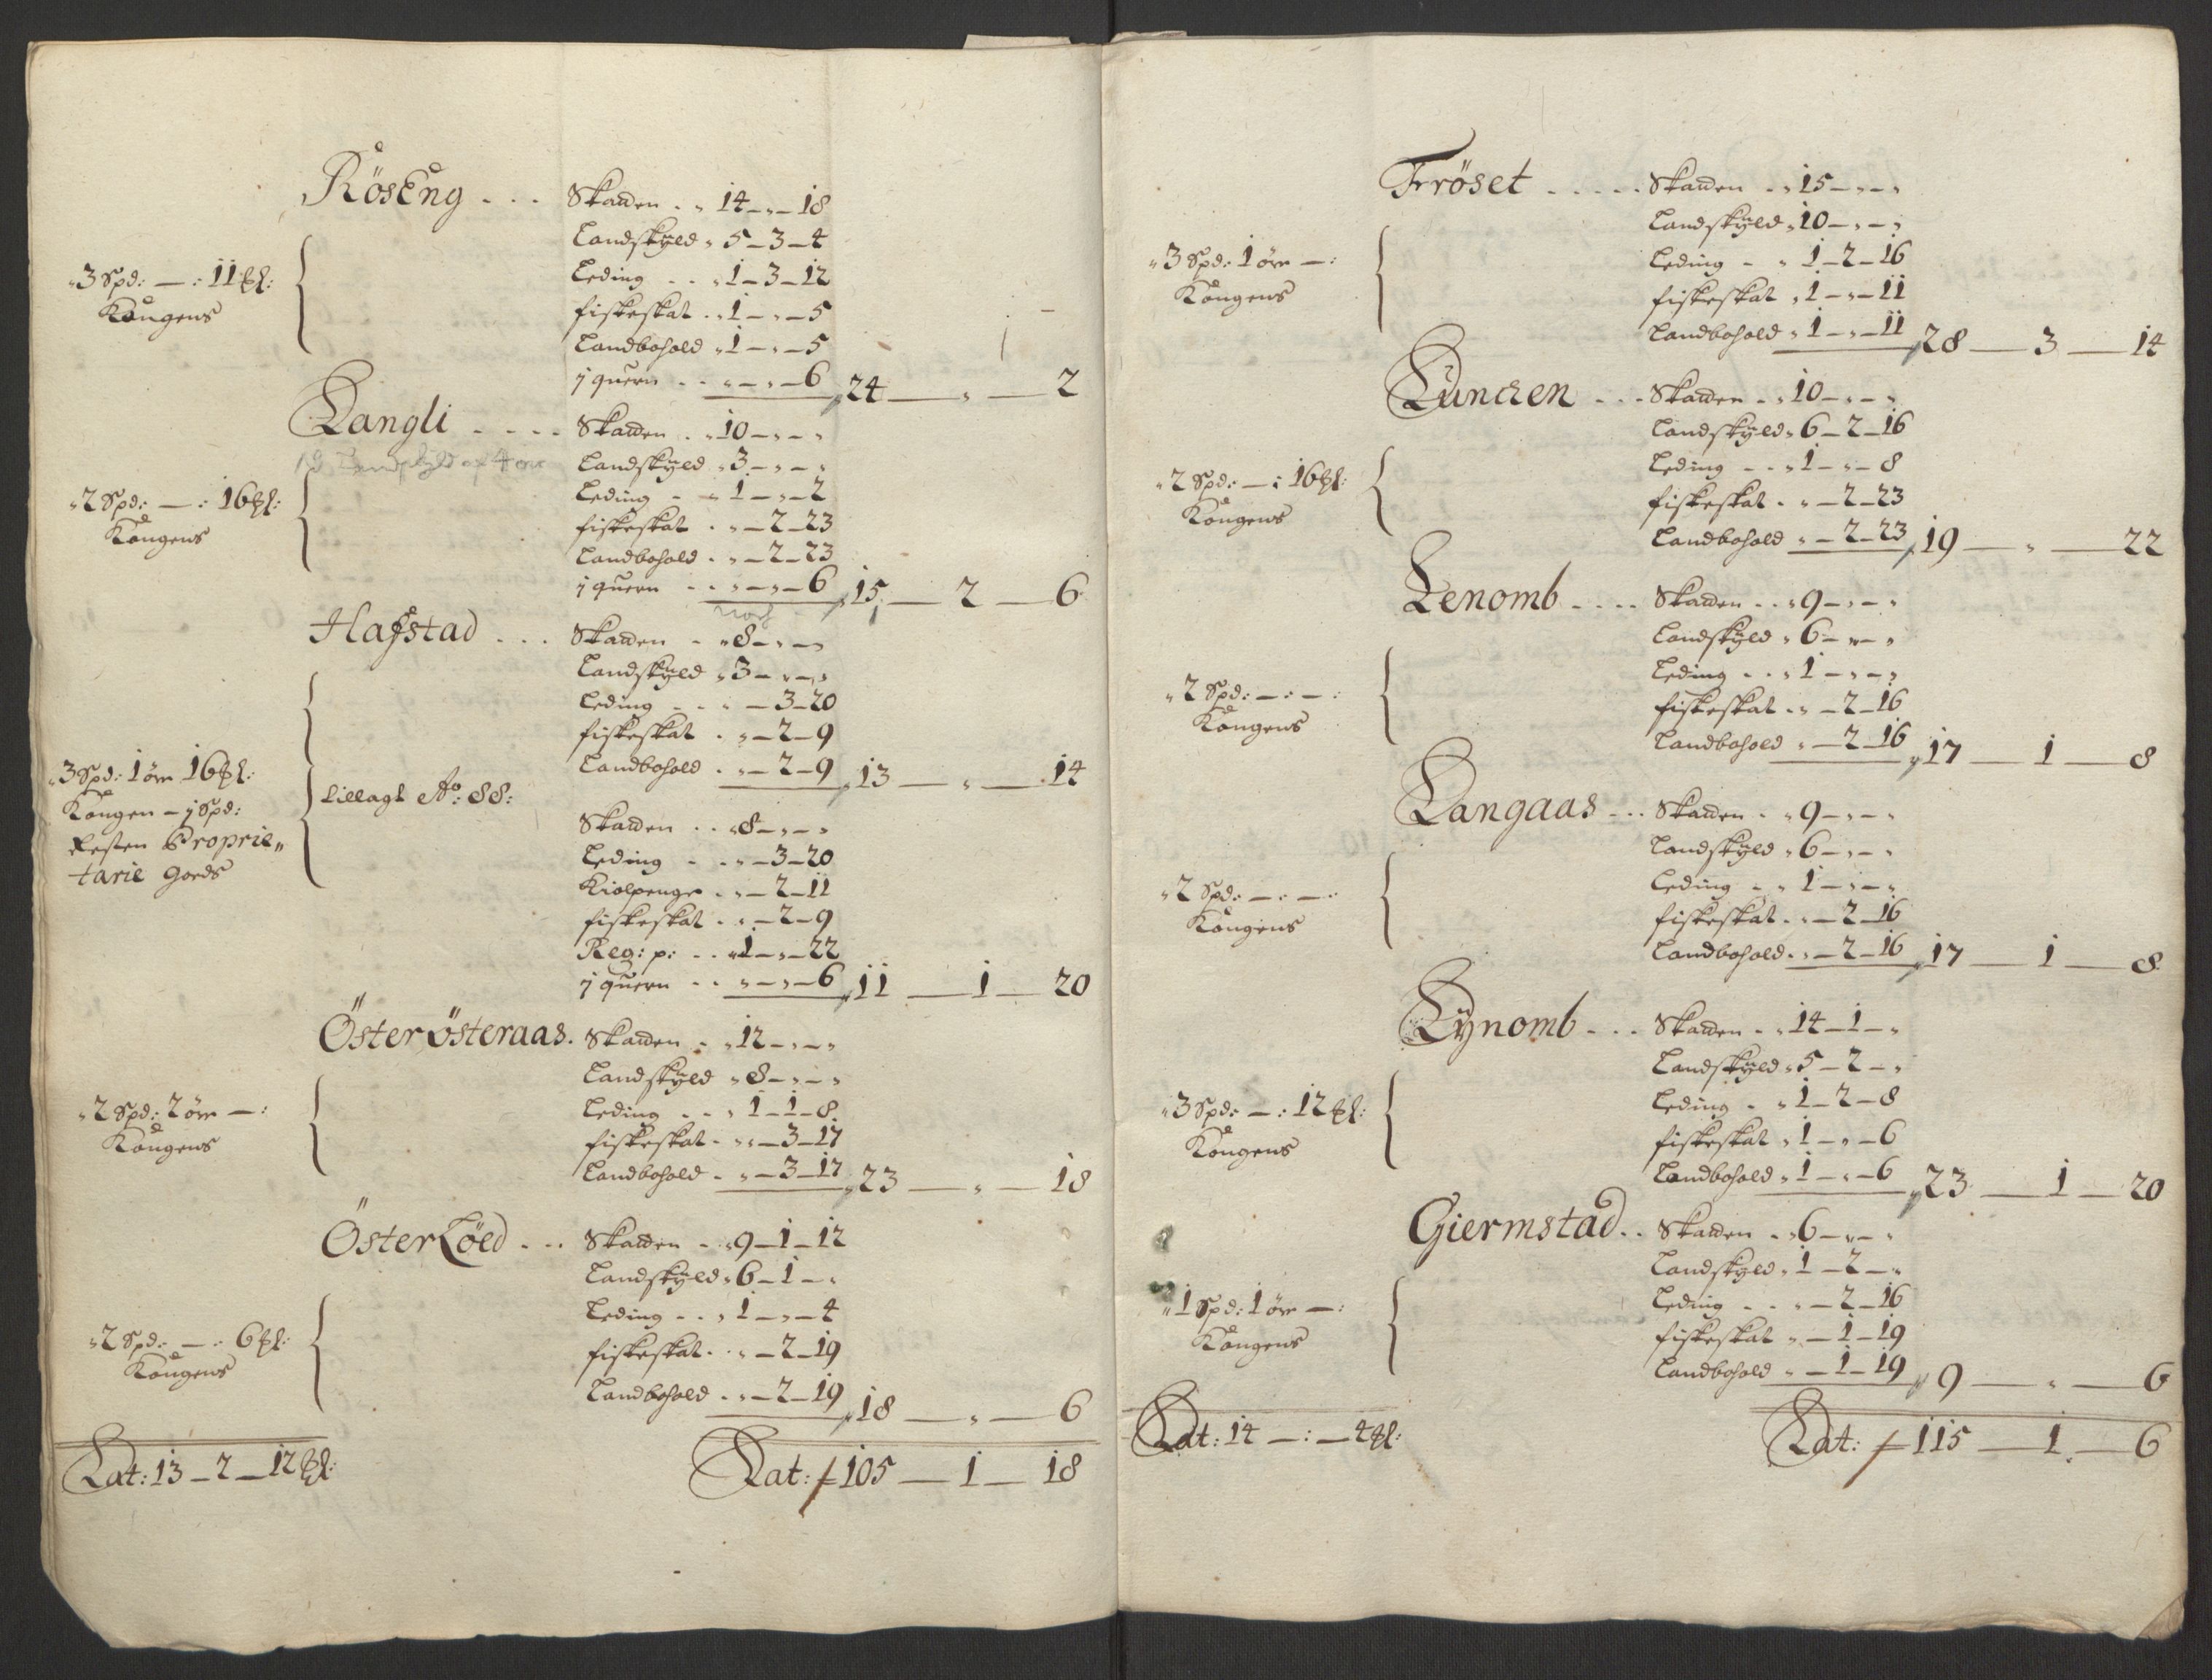 RösEng - - - Skatten - „ 14 - „ - 18
Landskyld „ 5 - 3 - 4
„3 Spd: — : 11 ℔l: Leding - - „ 1 - 3 - 12
Kongens fiskeskat . „ 1 - „ - 5
Landbohold „ 1 - „ - 5
j quern - - „ - „ - 6 24 — „ — 2
Langli - - - - Skatten . „ 10 - „ - „
Landskyld af 4 Landskyld „ 3 - „ - „
„2 Spd: — : 16 ℔l: Leding - „ 1 - „ - 2
Kongens fiskeskat . „ - 2 - 23
Landbohold . „ - 2 - 23
j quern - - „ - „ - 6 15 — 2 — 6
Hafstad - - - Skatten - „ 8 - „ - „
Landskyld „ 3 - „ - „
Leding - - „ - 3 - 20
fiskeskat . „ - 2 - 9
„3 Spd: 1 öre 16 ℔l: Landbohold . „ - 2 - 9 13 — „ — 14
Kongen - j Spd: tillagt Ao: 88:
Skatten . . „ 8 - „ - „
Resten Proprie„
Leding - - „ - 3 - 20
tarie Goeds
Kiolpenge . „ - 2 - 11
fiskeskat . „ - 2 - 9
Reg: p: - - „ 1 - „ - 22
j quern - - „ - „ - 6 11 — 1 — 20
Öster Österaas. Skatten - „ 12 - „ - „
Landskyld „ 8 - „ - „
„2 Spd: 2 öre — : Leding - - „ 1 - 1 - 8
Kongens fiskeskat - „ - 3 - 17
Landbohold - „ - 3 - 17 23 — „ — 18
Öster Löed - - - Skatten - „ 9 - 1 - 12
Landskyld „ 6 - 1 - „
Leding - - „ 1 - „ - 4
„2 Spd: — : 6 ℔l: fiskeskat . „ - 2 - 19
Kongens
Landbohold . „ - 2 - 19 18 — „ — 6
Lat: 13 - 2 - 12 ℔l: Lat: 105 — 1 — 18
Fröset - - - - - Skatten - „ 15 - „ - „
Landskyld „ 10 - „ - „
„3 Spd: 1 öre — : Leding - „ 1 - 2 - 16
Kongens fiskeskat „ 1 - „ - 11
Landbohold „ 1 - „ - 11 28 — 3 — 14
Lunden - - - Skatten - „ 10 - „ - „
Landskyld „ 6 - 2 - 16
„2 Spd: — : 16 ℔l: Leding - - „ 1 - „ - 8
Kongens fiskeskat . „ - 2 - 23
Landbohold „ - 2 - 23 19 — „ — 22
Lenomb - - - - Skatten - - „ 9 - „ - „
Landskyld „ 6 - „ - „
Leding - - „ 1 - „ - „
„2 Spd: — : — : fiskeskat - „ - 2 - 16
Kongens Landbohold „ - 2 - 16 17 — 1 — 8
Langaas - - - Skatten - „ 9 - „ - „
Landskyld „ 6 - „ - „
„2 Spd: — : — : Leding - „ 1 - „ - „
Kongens fiskeskat . „ - 2 - 16
Landbohold . „ - 2 - 16 17 — 1 — 8
Lynomb - - - Skatten - „ 14 - 1 - „
Landskyld „ 5 - 2 - „
„3 Spd: — : 12 ℔l: Leding - „ 1 - 2 - 8
Kongens fiskeskat „ 1 - „ - 6
Landbohold „ 1 - „ - 6 23 — 1 — 20
Giermstad . . Skatten - „ 6 - „ - „
Landskyld „ 1 - 2 - „
„1 Spd: 1 öre — : Leding - - „ - 2 - 16
Kongens fiskeskat „ - 1 - 19
Landbohold „ - 1 - 19 9 — „ — 6
Lat: 14 — : — 4 ℔l: Lat: 115 — 1 — 6